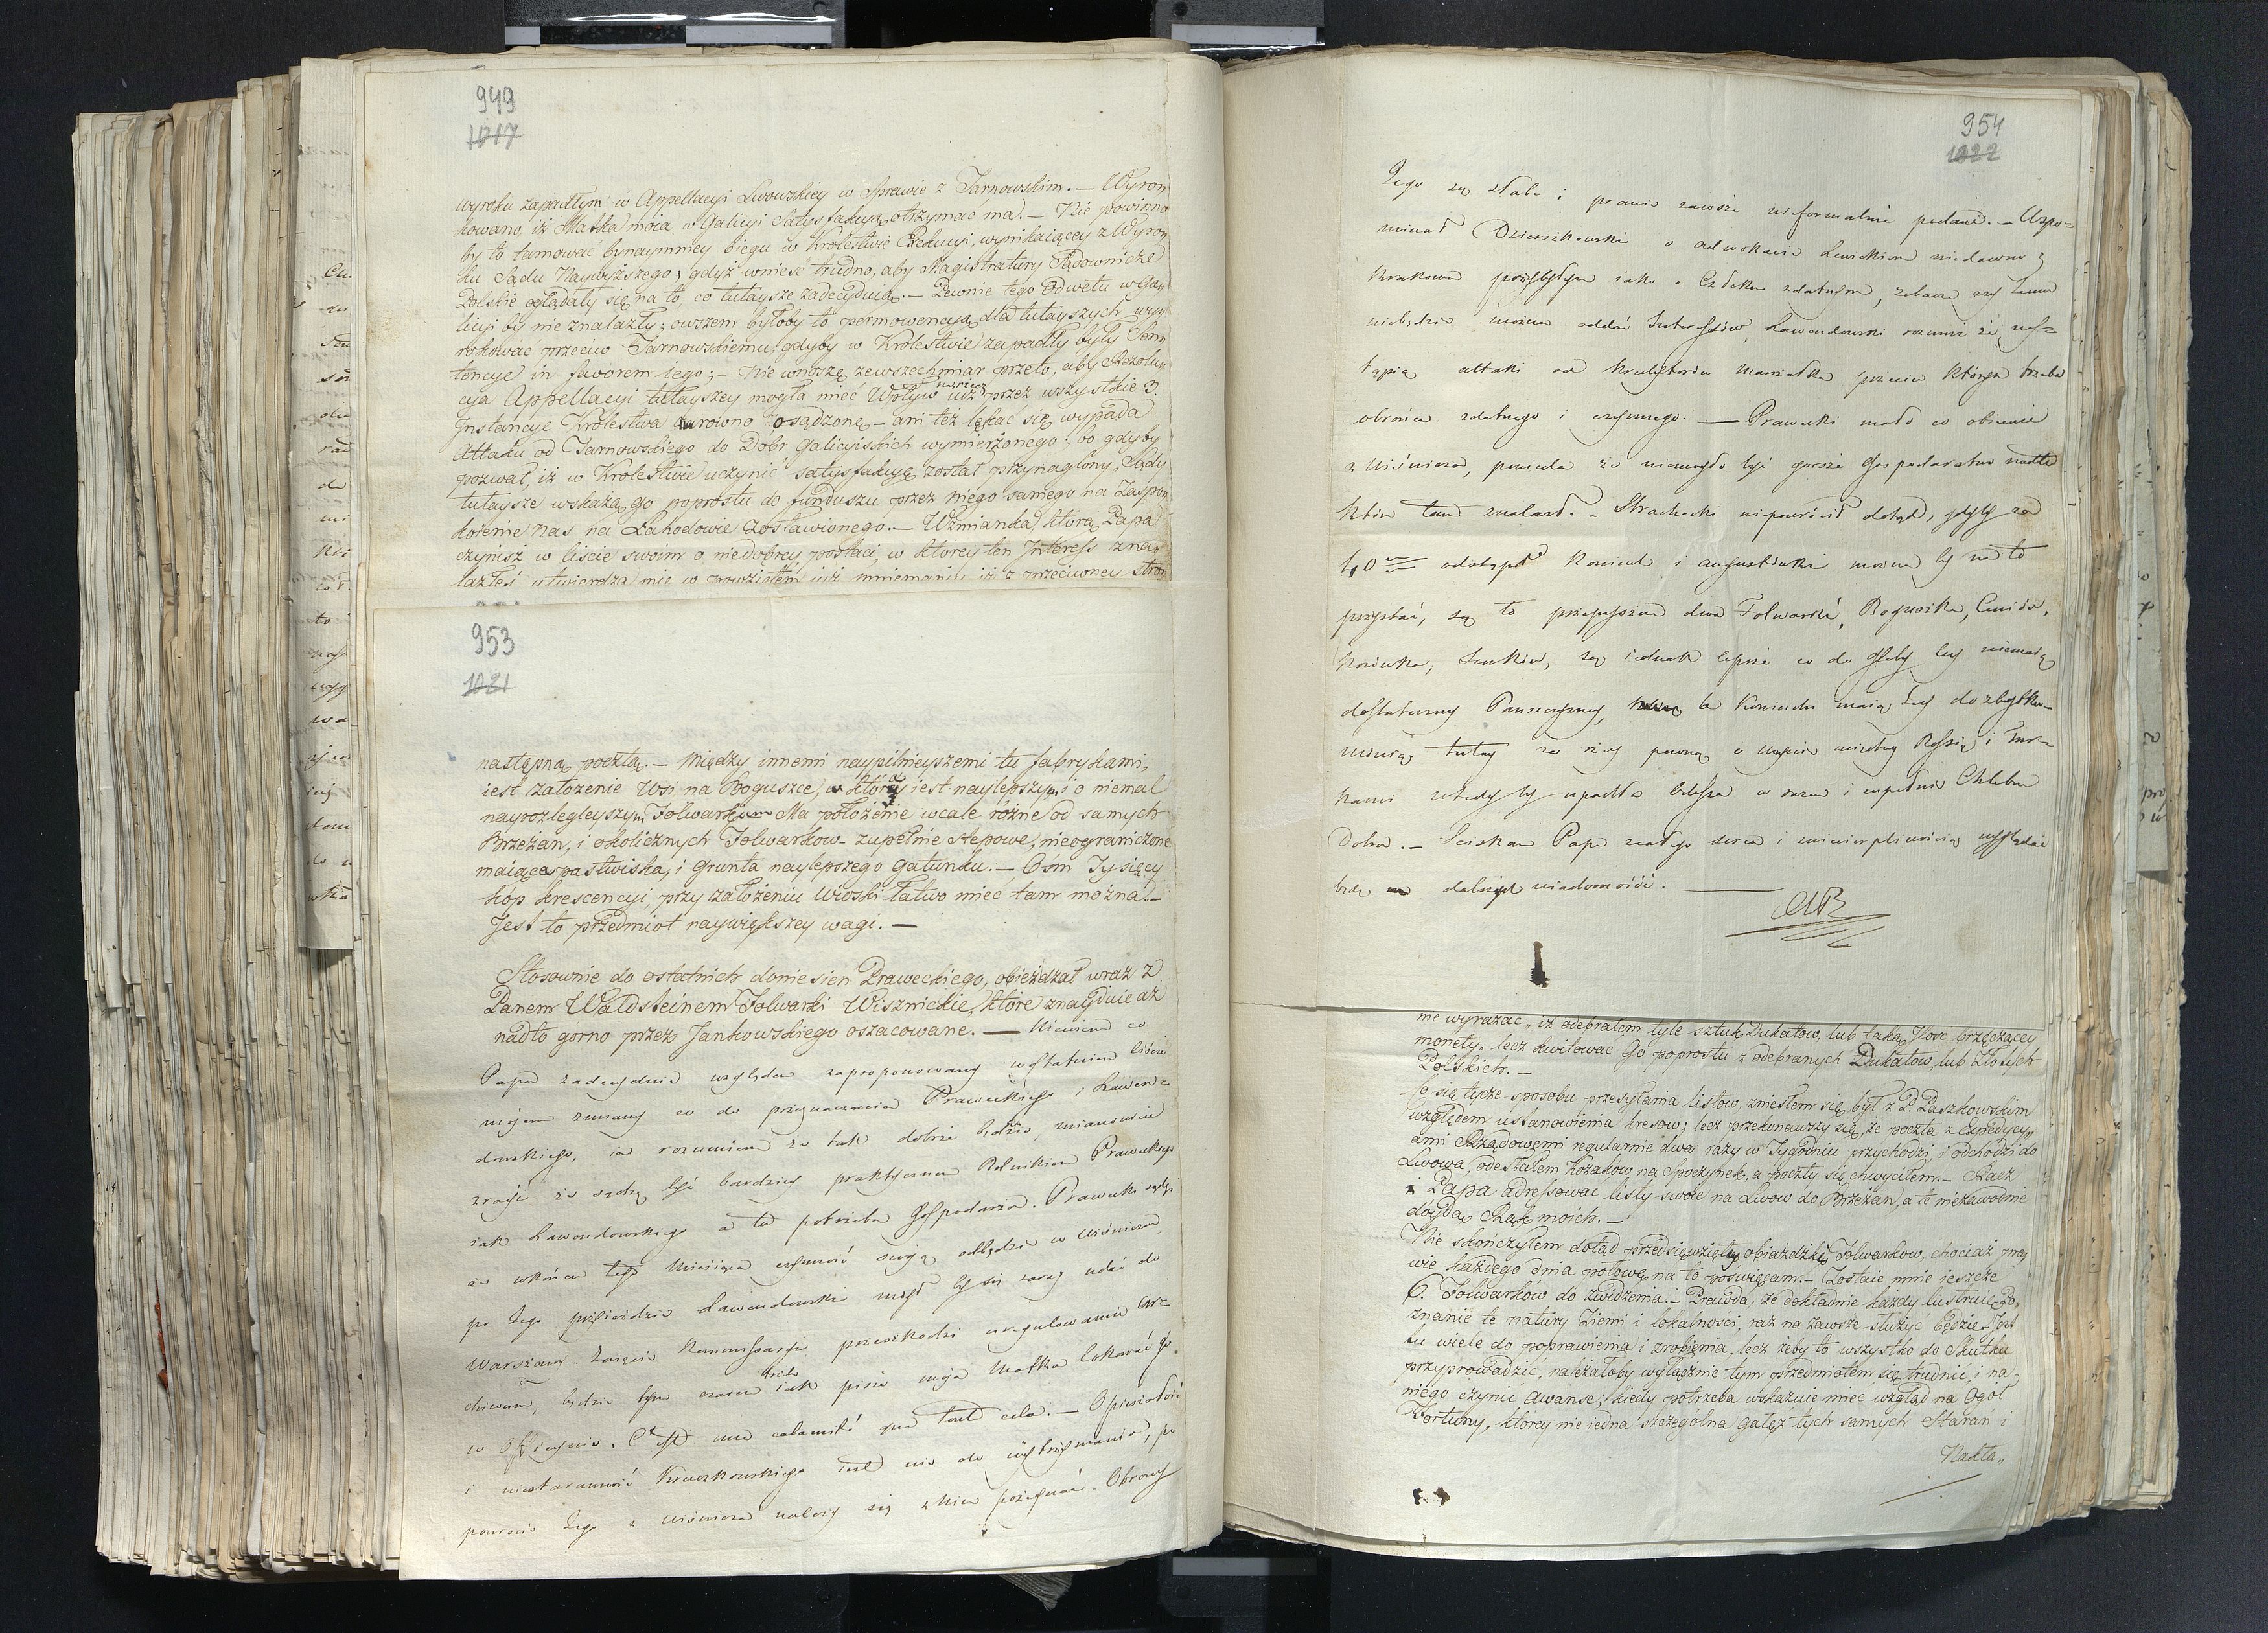 949
1017
wyroku zapadłym w Appellacyi Lwowskiey w Sprawie z Tarnowskim. — Wyron
kowano, iż Matka moia w Galicyi Satysfakcyą otrzymać ma. — Nie powinno
by to tamować bynaymniey biegu w Królestwie Exekucyi, wynikaiącey z Wyron
ku Sądu Naywyższego, gdyż wnieść trudno, aby Magistratury Sądownicze
Polskie oglądały się na to, co tutaysze zadecyduią. — Pewnie tego Odwetu w Gan
licyi by nie znalazły; owszem byłoby to permowencyą dla tutayszych wyn
rokować przeciw Tarnowskiemu, gdyby w Królestwie zapadły były Senn
tencye in favorem tego; — Nie wnoszę zewszechmiar przeto, aby Rezolun
cya Appellacyi tutayszey mogła mieć Wpływ iuż przez wszystkie 3.
Instancye Królestwa osądzone — ani też lękać się wypada
Attaku od Tarnowskiego do Dobr Galicyiskich wymierzonego; bo gdyby
pozwał, iż w Królestwie uczynić satysfakcyę został przynaglony, Sądy
tutaysze wskażą go poprostu do funduszu przez niego samego na Zaspon
koienie nas na Lahodowie zostawionego. — Wzmianka, którą Papa
czynisz w liście swoim o niedobrey postaci, w którey ten Interess znan
lazłeś utwierdza mie w powziętem iuż mniemaniu iż z przeciwney stron
953
1021
następną pocztą. — Między innemi naypilnieyszemi tu fabrykami,
iest założenie Wsi na Boguszce, która iest naylepszym i o niemal
nayrozlegleyszym Folwarkiem Ma położenie wcale różne od samych
Brzeżan, i okolicznych Folwarkow zupełnie stepowe, nieograniczone
maiące pastwiska, i Grunta naylepszego gatunku. — Ośm Tysięcy
kóp krescencyi, przy założeniu Wioski łatwo mieć tam można. —
Jest to przedmiot naywiększey wagi. —
Stosownie do ostatnich doniesien Praweckiego, obieżdzał wraz z
Panem Waldsteinem Folwarki Wisznickie, które znayduie aż
nadto gorno przez Jankowskiego oszacowane. — Niewiem co
Papa zadecyduie względem zaproponowany w ostatnim liście
moiem zmiany co do przeznaczenia Praweckiego i Lawen=
dowskiego, ia rozumiem że tak dobrze będzie, mianowicie
zważ że sądzę być bardziey praktycznem Rolnikiem Praweckiego
iak Lawendowskiego a tu potrzeba Gospodarza. Prawecki
że wkońcu tego Miesiąca czynność swoią odbędzie w Wiśniczu
po Jego przyieździe Lawendowski mógł by się zaraz udać do
Warszawy. Zaięcie Kommissaryi przeszkodzi uregulowaniu ar=
chiwum, będzie tym czasem iak pisze moja Matka lokować Go
w Officynie. C'est une calamité que tout cela. — Opieszałość
i niestaranność Kruczkowskiego iest nie do wytrzymania, po
powrocie Jego z Wiśnicza należy się z Nim pożegnać. Obrony
954
1022
Jego są słabe i prawie zawsze nieformalnie podane. — Wspo=
minał Dzierzkowski o adwokacie Lewickim niedawno z
Krakowa przybyłym iako o Człeku zdatnym, zobaczę czy temu
niebędzie można oddać Interessów, Lawendowski rozumie że nas=
tąpią attaki od Kredytorów Marszałka przeciw którym trzeba
obrońcę zdatnego i czynnego. — Prawecki mało co obiecuie
z Wiśnicza, powiada że niemogło być gorsze Gospodarstwo nadto
które tam znalazł. — Strachocki niepowrócił dotąd, gdyby za
40 odstąpił Koniuch i augustówki można by na to
przystać, są to przepyszne dwa Folwarki, Boguszka, Ceniów,
Kozówka, Szuków, są iednak lepsze co do gleby lecz niemaią
dostateczney Panszczyzny, te Koniuchi maią Jey do zbytku.
Mówią tutay za rzecz pewną o woynie między Rossyą i Turc=
kami wtedy by upadła Odessa a zaraz i zupełnie Chlebne
Dobra. — Sciskam Papę z całego serca i z niecierpliwością wyglądać
będę dalszych wiadomości. —
AR
nie wyrażać, iż odebrałem tyle sztuk Dukatow, lub taką Ilosc brzęczącey
monety, lecz kwitować Go poprostu z odebranych Dukatow, lub Złotych
Polskich. —
Co się tycze sposobu przesyłania listow, zniesłem się był z P. Paszkowskim
względem ustanowienia kresow; lecz przekonawszy się, że poczta z Expedycy„
ami Rządowemi regularnie dwa razy w Tygodniu przychodzi, i odchodzi do
Lwowa, odesłałem Kozaków na Spoczynek, a poczty się chwyciłem. — Racz
i Papa adressować listy swoie na Lwow do Brzeżan, a te niezawodnie
doyidą Rąk moich. —
Nie skończyłem dotąd przedsięwziętey obiażdzki Folwarkow, chociaż pra„
wie każdego dnia połowę na to poświęcam. — Zostaie mnie ieszcze
6. Folwarkow do zwidzenia. — Prawda, że dokładnie każdy lustruię Po„
znanie te natury Ziemi i lokalności, raz na zawsze służyć będzie Jest
tu wiele do poprawienia i zrobienia, lecz żeby to wszystko do Skutku
przyprowadzić, należałoby wyłącznie tym przedmiotem się trudnić, i na
niego czynić awanse; kiedy potrzeba wskazuie mieć wzgląd na Ogół
Fortuny, którey nie iedna szczegolna gałęz tych samych Staran i
Nakła„